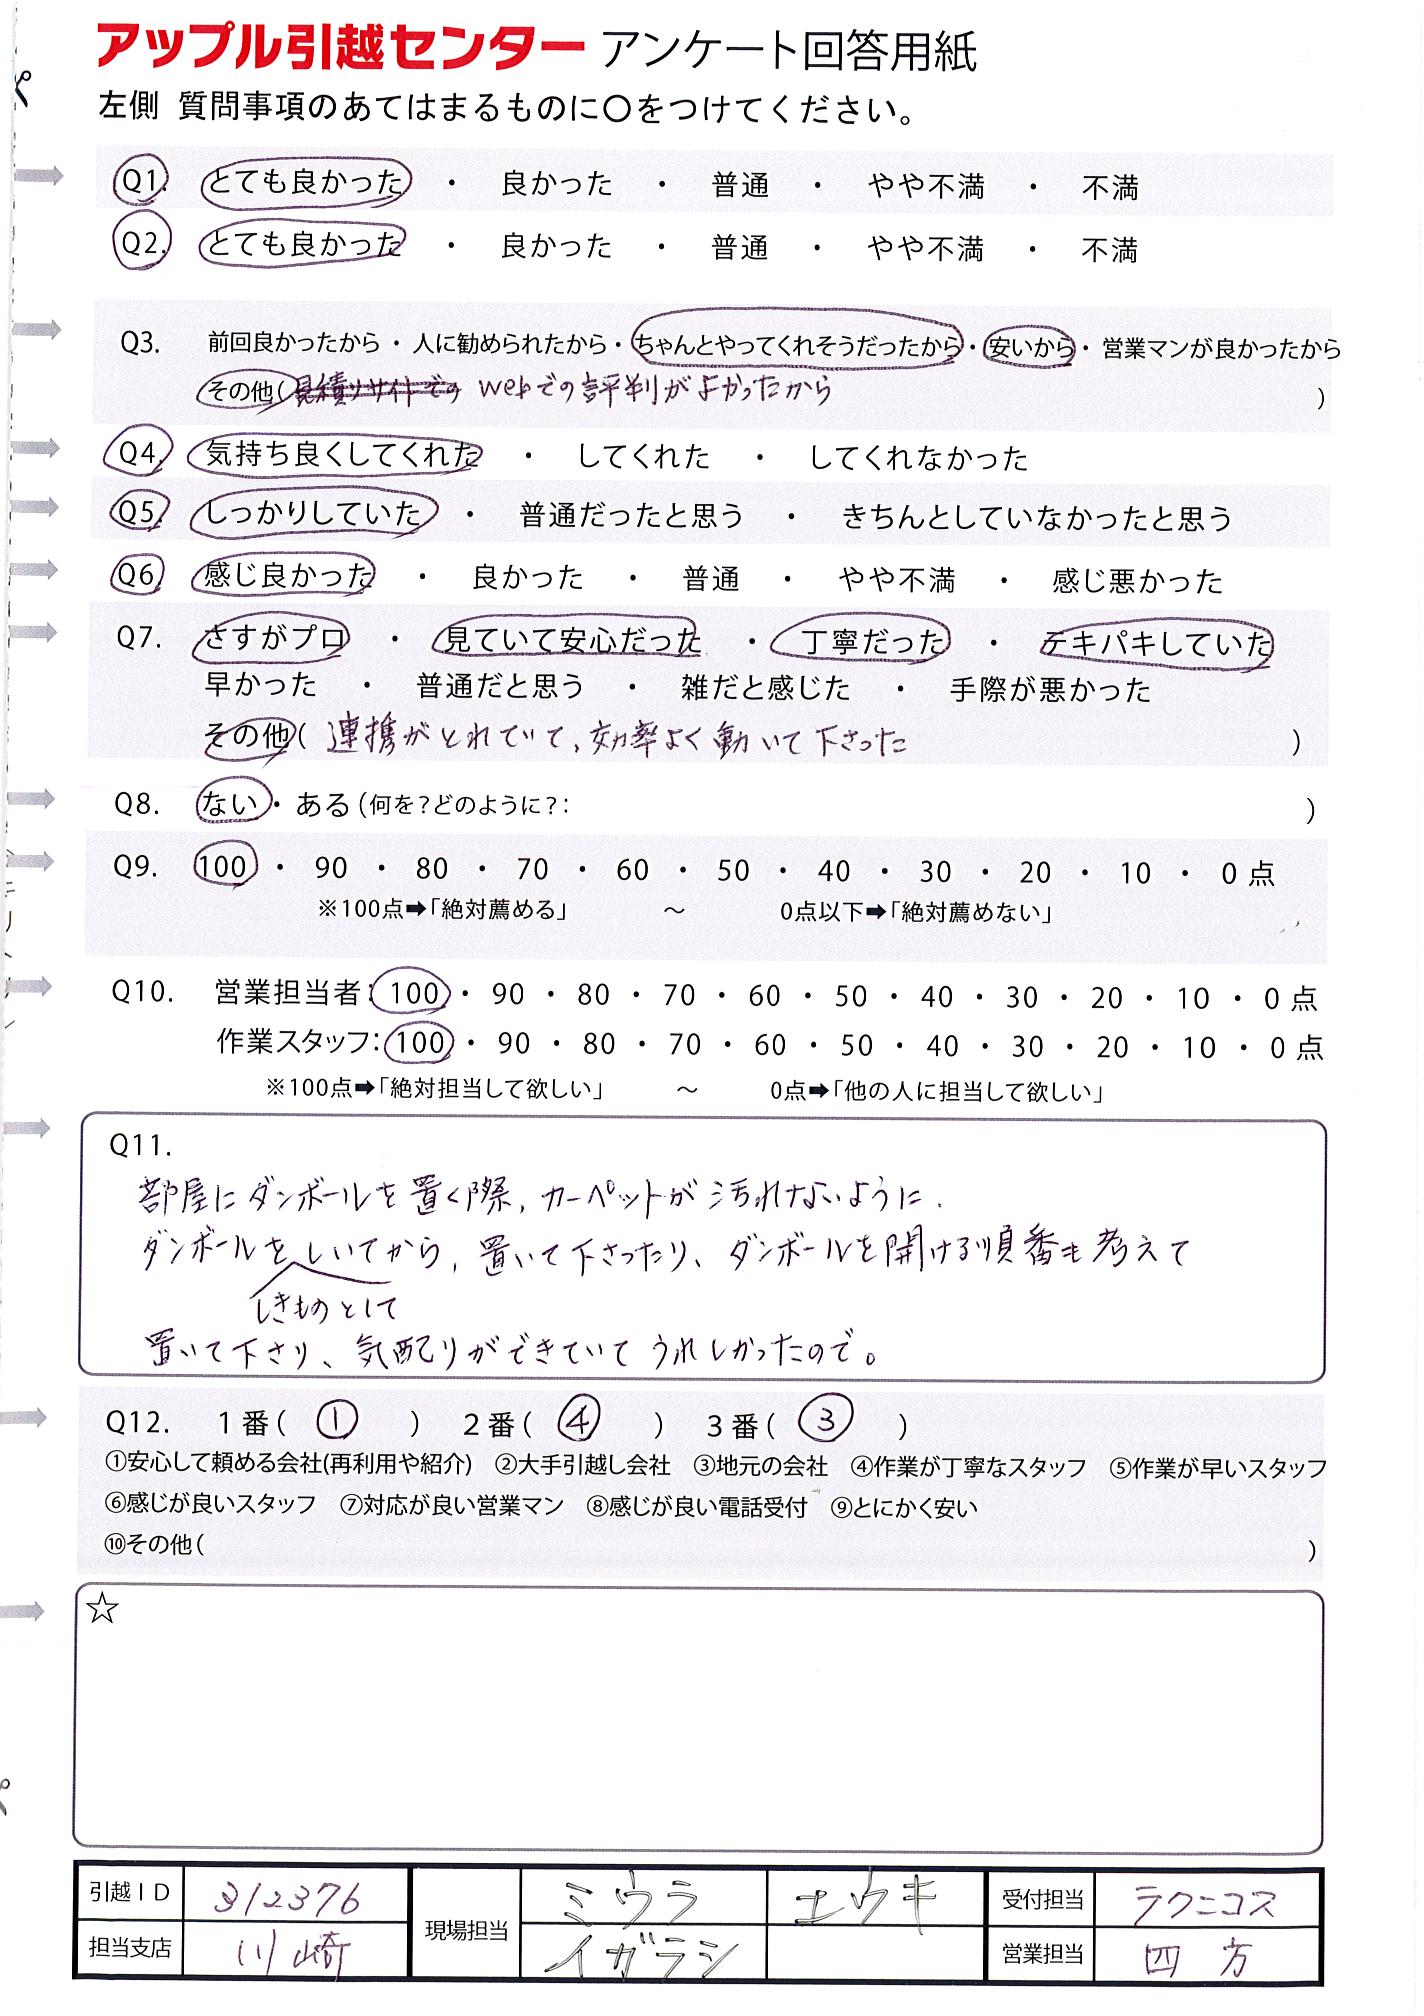 アップル引越センター アンケート回答用紙
左側 質問事項のあてはまるものに〇をつけてください。
Q1. とても良かった ・ 良かった ・ 普通 ・ やや不満 ・ 不満
Q2. とても良かった ・ 良かった ・ 普通 ・ やや不満 ・ 不満
Q3. 前回良かったから・人に勧められたから・ちゃんとやってくれそうだったから・安いから・営業マンが良かったから
その他( webでの評判がよかったから )
Q4. 気持ち良くしてくれた ・ してくれた ・ してくれなかった
Q5. しっかりしていた ・ 普通だったと思う ・ きちんとしていなかったと思う
Q6. 感じ良かった ・ 良かった ・ 普通 ・ やや不満 ・ 感じ悪かった
Q7. さすがプロ ・ 見ていて安心だった ・ 丁寧だった ・ テキパキしていた
早かった ・ 普通だと思う ・ 雑だと感じた ・ 手際が悪かった
その他( 連携がとれていて、効率よく動いて下さった )
Q8. ない・ある(何を?どのように?: )
Q9. 100 ・ 90 ・ 80 ・ 70 ・ 60 ・ 50 ・ 40 ・ 30 ・ 20 ・ 10 ・ 0 点
※100点➡「絶対薦める」 ～ 0点以下➡「絶対薦めない」
Q10. 営業担当者: 100 ・ 90 ・ 80 ・ 70 ・ 60 ・ 50 ・ 40 ・ 30 ・ 20 ・ 10 ・ 0 点
作業スタッフ: 100 ・ 90 ・ 80 ・ 70 ・ 60 ・ 50 ・ 40 ・ 30 ・ 20 ・ 10 ・ 0 点
※100点➡「絶対担当して欲しい」 ～ 0点➡「他の人に担当して欲しい」
Q11.
部屋にダンボールを置く際、カーペットが汚れないように、
ダンボールをしいてから、置いて下さったり、ダンボールを開ける順番も考えて
しきものとして
置いて下さり、気配りができていてうれしかったので。
Q12. 1番( ① ) 2番( ④ ) 3番( ③ )
①安心して頼める会社(再利用や紹介) ②大手引越し会社 ③地元の会社 ④作業が丁寧なスタッフ ⑤作業が早いスタッフ
⑥感じが良いスタッフ ⑦対応が良い営業マン ⑧感じが良い電話受付 ⑨とにかく安い
⑩その他( )
☆
引越ID 312376 現場担当 ミウラ エウキ 受付担当 テクニコス
担当支店 川崎 イガラシ 営業担当 四方